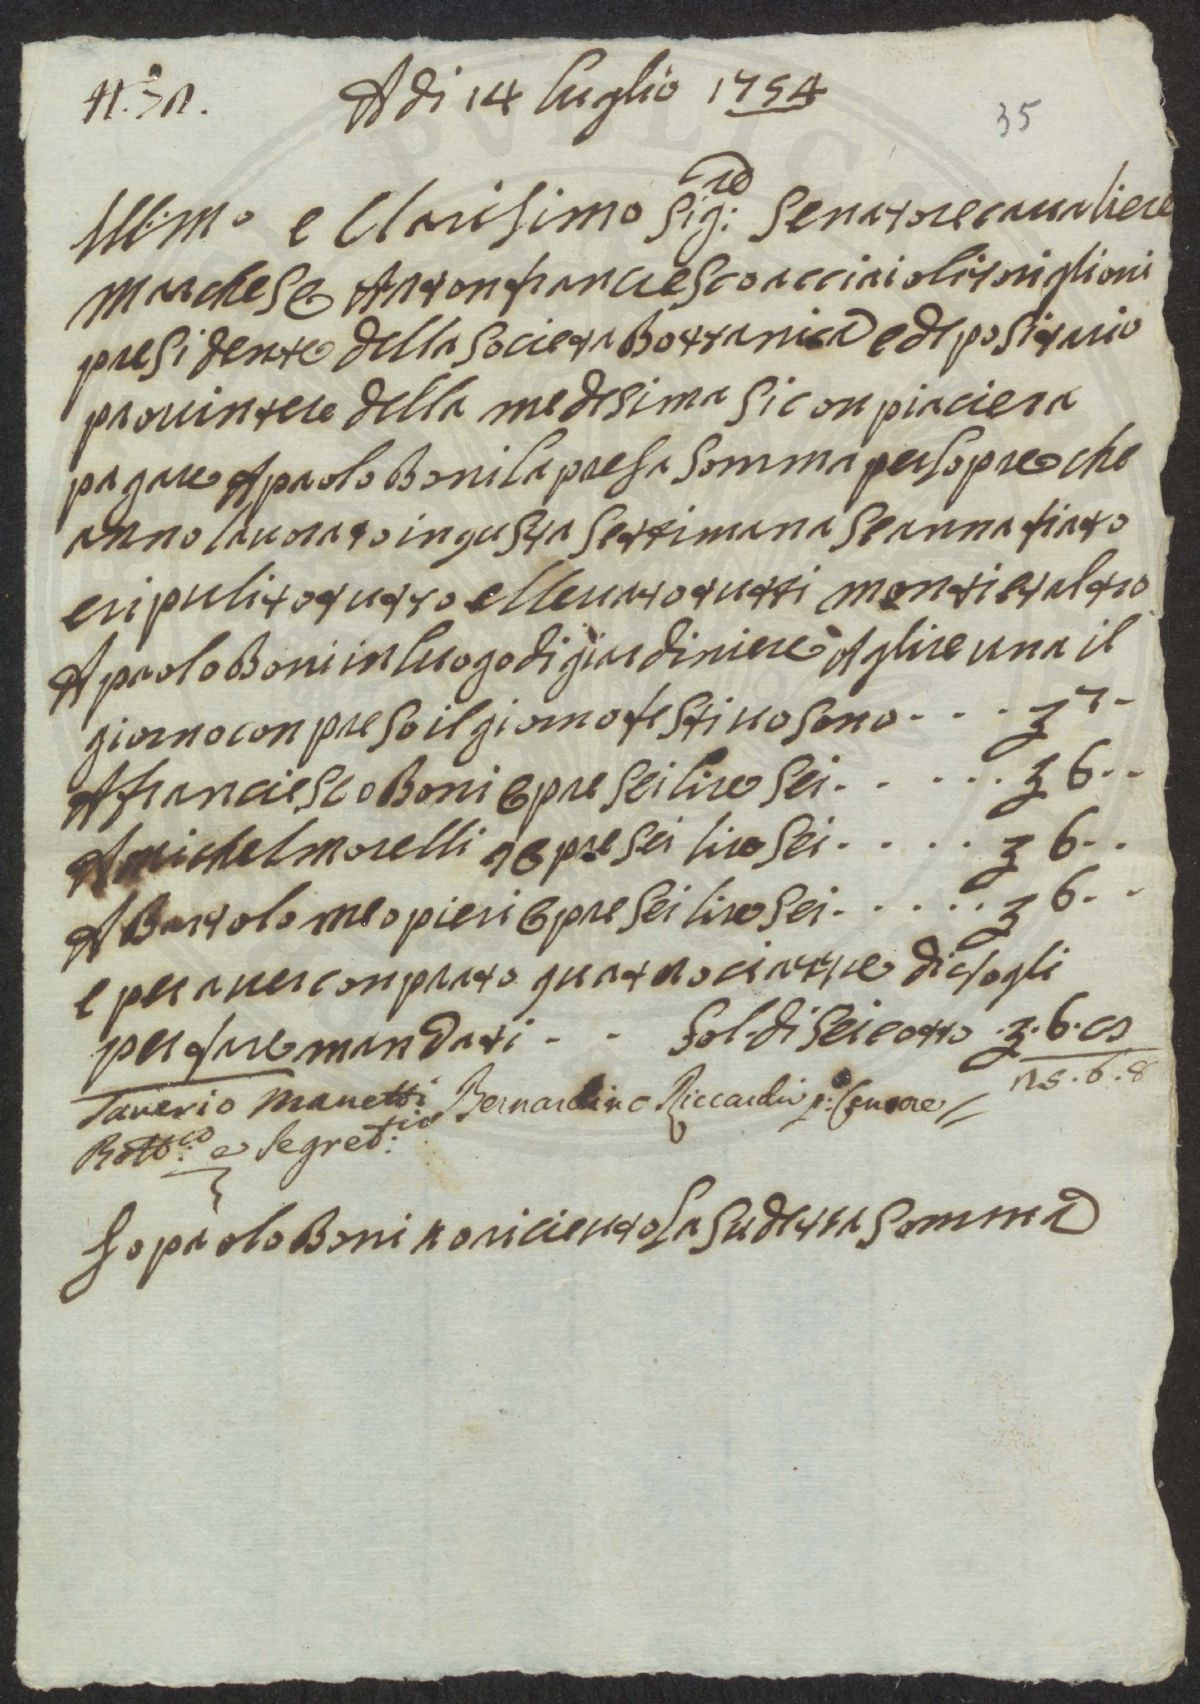 N.° 31.
A di 14 luglio 1754
35
Ill:mo e Clarisimo Sig:re Senatore caualiere
marchese Antonfranciesco acciaioli toriglioni
presidente della societa Bottanica e depositario
prouintere della medesima si conpiaciera
pagare A paolo Boni la presa somma per lopre che
anno lauorato in qusta settimana se anna fiato
eripulito qutto elleuato qutti monti et altro
A paolo Boni in luogo di giardiniere A glire una il
giorno con preso il giorno festiuo sono - - - £ 7 -
A franciesco Boni E pre sei lire sei - - - - - £ 6 - -
A michel morelli E pre sei lire sei - - - - £ 6 - -
A Bartolomeo pieri E pre sei lire sei - - - - £ 6 - -
e per auer conprato quatro ciartre di fogli
per fare mandati - - sol-di sei e otto £ 6. 8
25. 6. 8
Saverio Manetti Bernardino Riccardi p: Censore
Bott:co e Segret:rio
Io paolo Boni o riceuto la sudetta somma